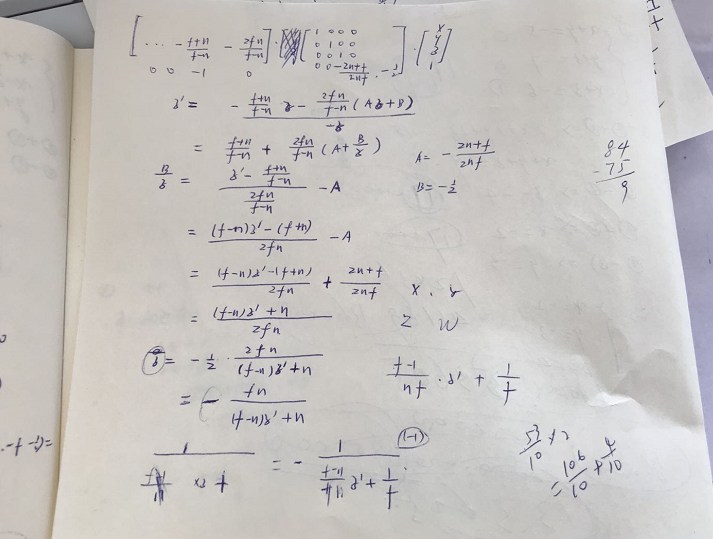 [ ... - f+n/f-n - 2fn/f-n ] · [ 1 0 0 0 ] · [ x ]
0 0 -1 0 0 1 0 0 y
0 0 1 0 z
0 0 -2n+f/2nf · -1/2 1
z' = (- f+n/f-n z - 2fn/f-n (Az+B)) / -z
= f+n/f-n + 2fn/f-n (A + B/z) A = - 2n+f/2nf
B/z = (z' - f+n/f-n) / (2fn/f-n) - A B = -1/2
= (f-n)z' - (f+n) / 2fn - A
= (f-n)z' - (f+n) / 2fn + 2n+f/2nf x . y
= (f-n)z' + n / 2fn z w
z = - 1/2 · 2fn / (f-n)z' + n f-1/nf · z' + 1/f
= - fn / (f-n)z' + n
= - 1 / (f-n/fn z' + 1/f) (-1)
84
-75
9
53/10 × 2
= 106/10 + 4/10